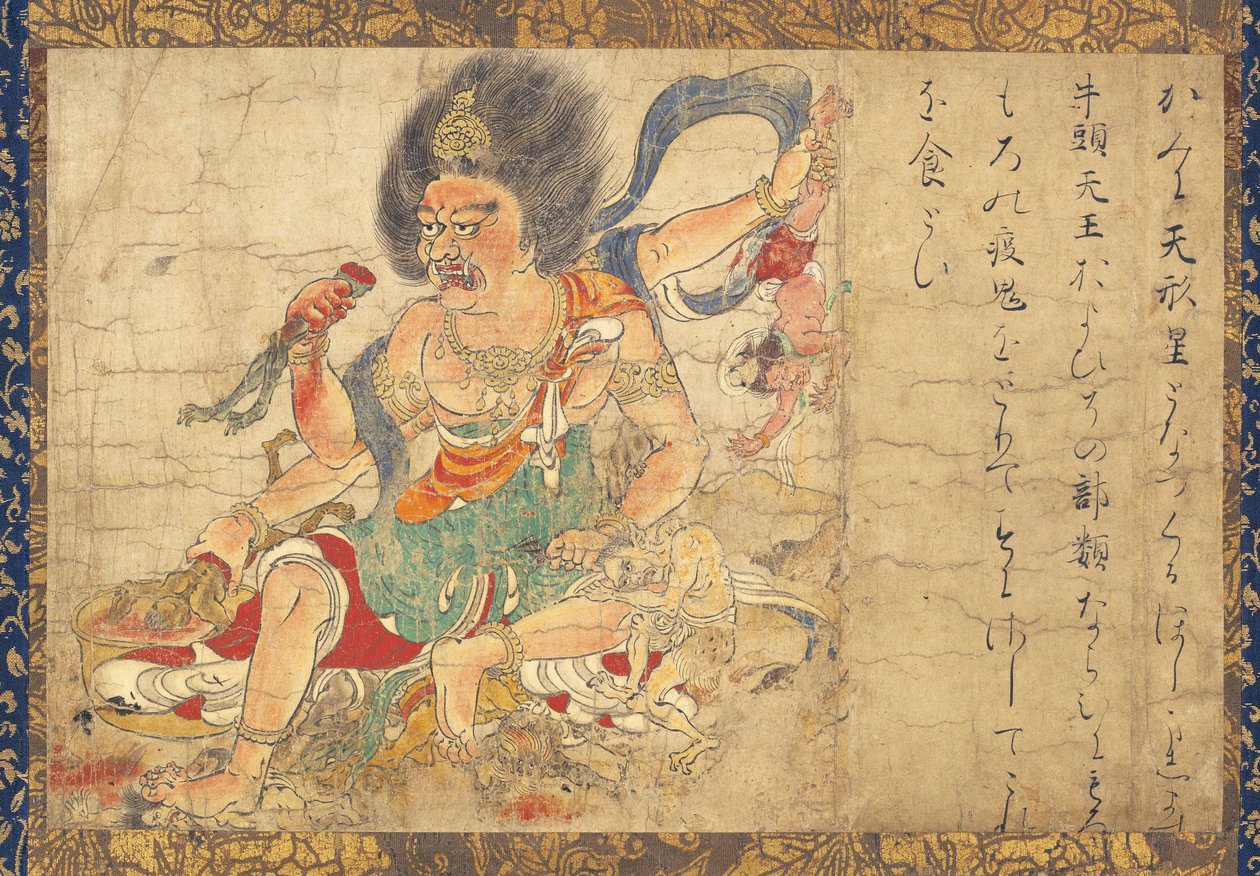 かみに天形星となつくるほし
牛頭天王およひその部類ならひにもろ
もろの疫鬼をとりてすにさしてこれ
を食とし